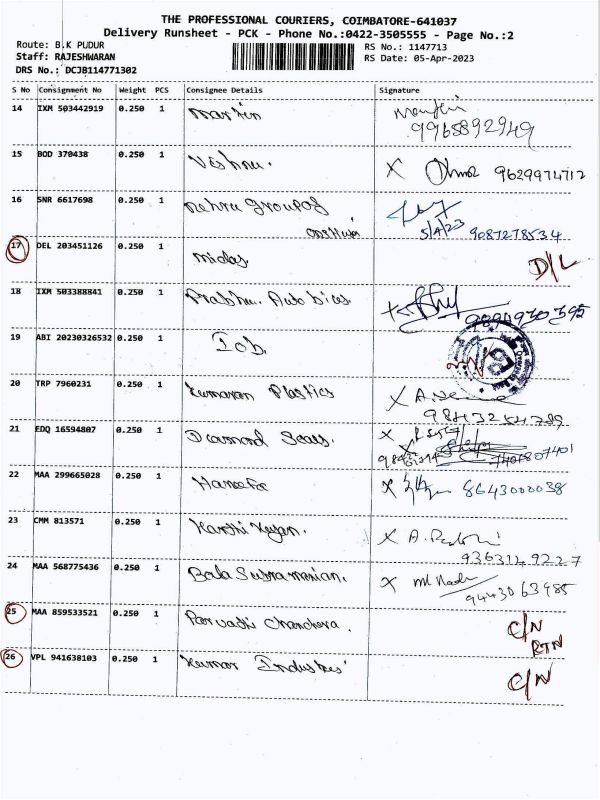 THE PROFESSIONAL COURIERS, COIMBATORE-641037
Delivery Runsheet - PCK - Phone No.:0422-3505555 - Page No.:2
Route: B.K PUDUR
RS No.: 1147713
Staff: RAJESHWARAN
RS Date: 05-Apr-2023
DRS No.: DCJB114771302
S No Consignment No Weight PCS Consignee Details Signature
14 IXM 503442919 0.250 1 Martin
9965892949
15 BOD 370438 0.250 1 Vishnu. X 9629974712
16 SNR 6617698 0.250 1 Nehru Groupof
5/4/23 9087278534
17 DEL 203451126 0.250 1 Midas D/L
18 IXM 503388841 0.250 1 Prabhu. Auto
19 ABI 20230326532 0.250 1 Iob.
20 TRP 7960231 0.250 1 Kumaran Plastics X
21 EDQ 16594807 0.250 1 Diamond Seals. X
22 MAA 299665028 0.250 1 Haneefa X 8643000038
23 CMM 813571 0.250 1 X A.
24 MAA 568775436 0.250 1 Bala Subramanian. X
9443063985
25 MAA 859533521 0.250 1 C/N
RTN
26 VPL 941638103 0.250 1 Kumar Industries C/N